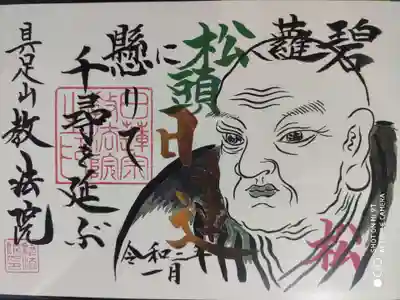 碧
蘿
松頭
に
懸りて
千尋を延ぶ
日蓮
松
令和二年
一月
具足山教法院
SHOT ON MI 9T
AI TRIPLE CAMERA